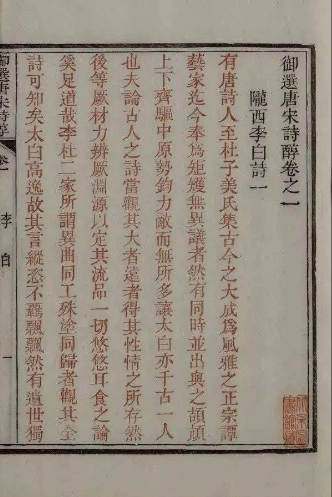 御選唐宋詩醇卷之一
隴西李白詩一
有唐詩人至杜子美氏集古今之大成為風雅之正宗譚
藝家迄今奉為矩矱無異議者然有同時並出與之頡頏
上下齊驅中原勢鈞力敵而無所多讓太白亦千古一人
也夫論古人之詩當觀其大者遠者得其性情之所存然
後等厥材力辨厥淵源以定其流品一切悠悠耳食之論
奚足道哉李杜二家所謂異曲同工殊塗同歸者觀其全
詩可知矣太白高逸故其言縱恣不羈飄飄然有遺世獨
御選唐宋詩醇
卷一
李白
一